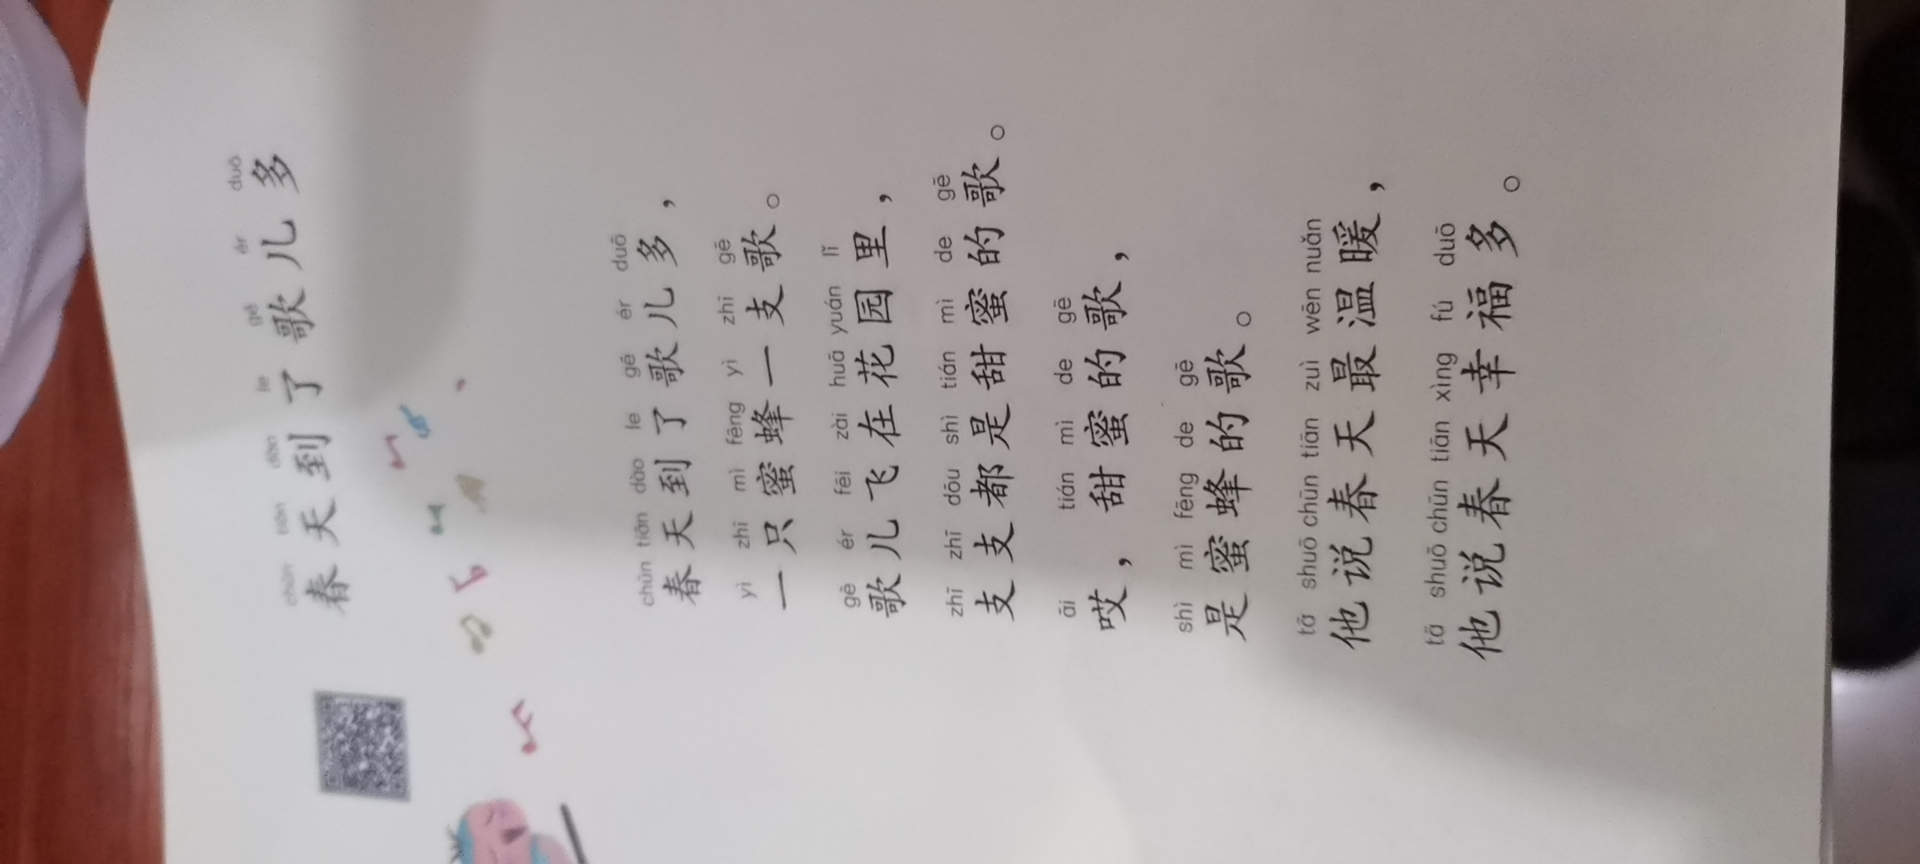 chūn tiān dào le gē ér duō
春天到了歌儿多
chūn tiān dào le gē ér duō
春天到了歌儿多，
yì zhī mì fēng yì zhī gē
一只蜜蜂一支歌。
gē ér fēi zài huā yuán lǐ
歌儿飞在花园里，
zhī zhī dōu shì tián mì de gē
支支都是甜蜜的歌。
āi tián mì de gē
哎，甜蜜的歌，
shì mì fēng de gē
是蜜蜂的歌。
tā shuō chūn tiān zuì wēn nuǎn
他说春天最温暖，
tā shuō chūn tiān xìng fú duō
他说春天幸福多。